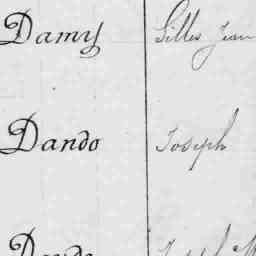 Damy Gilles Jean
Dando Joseph